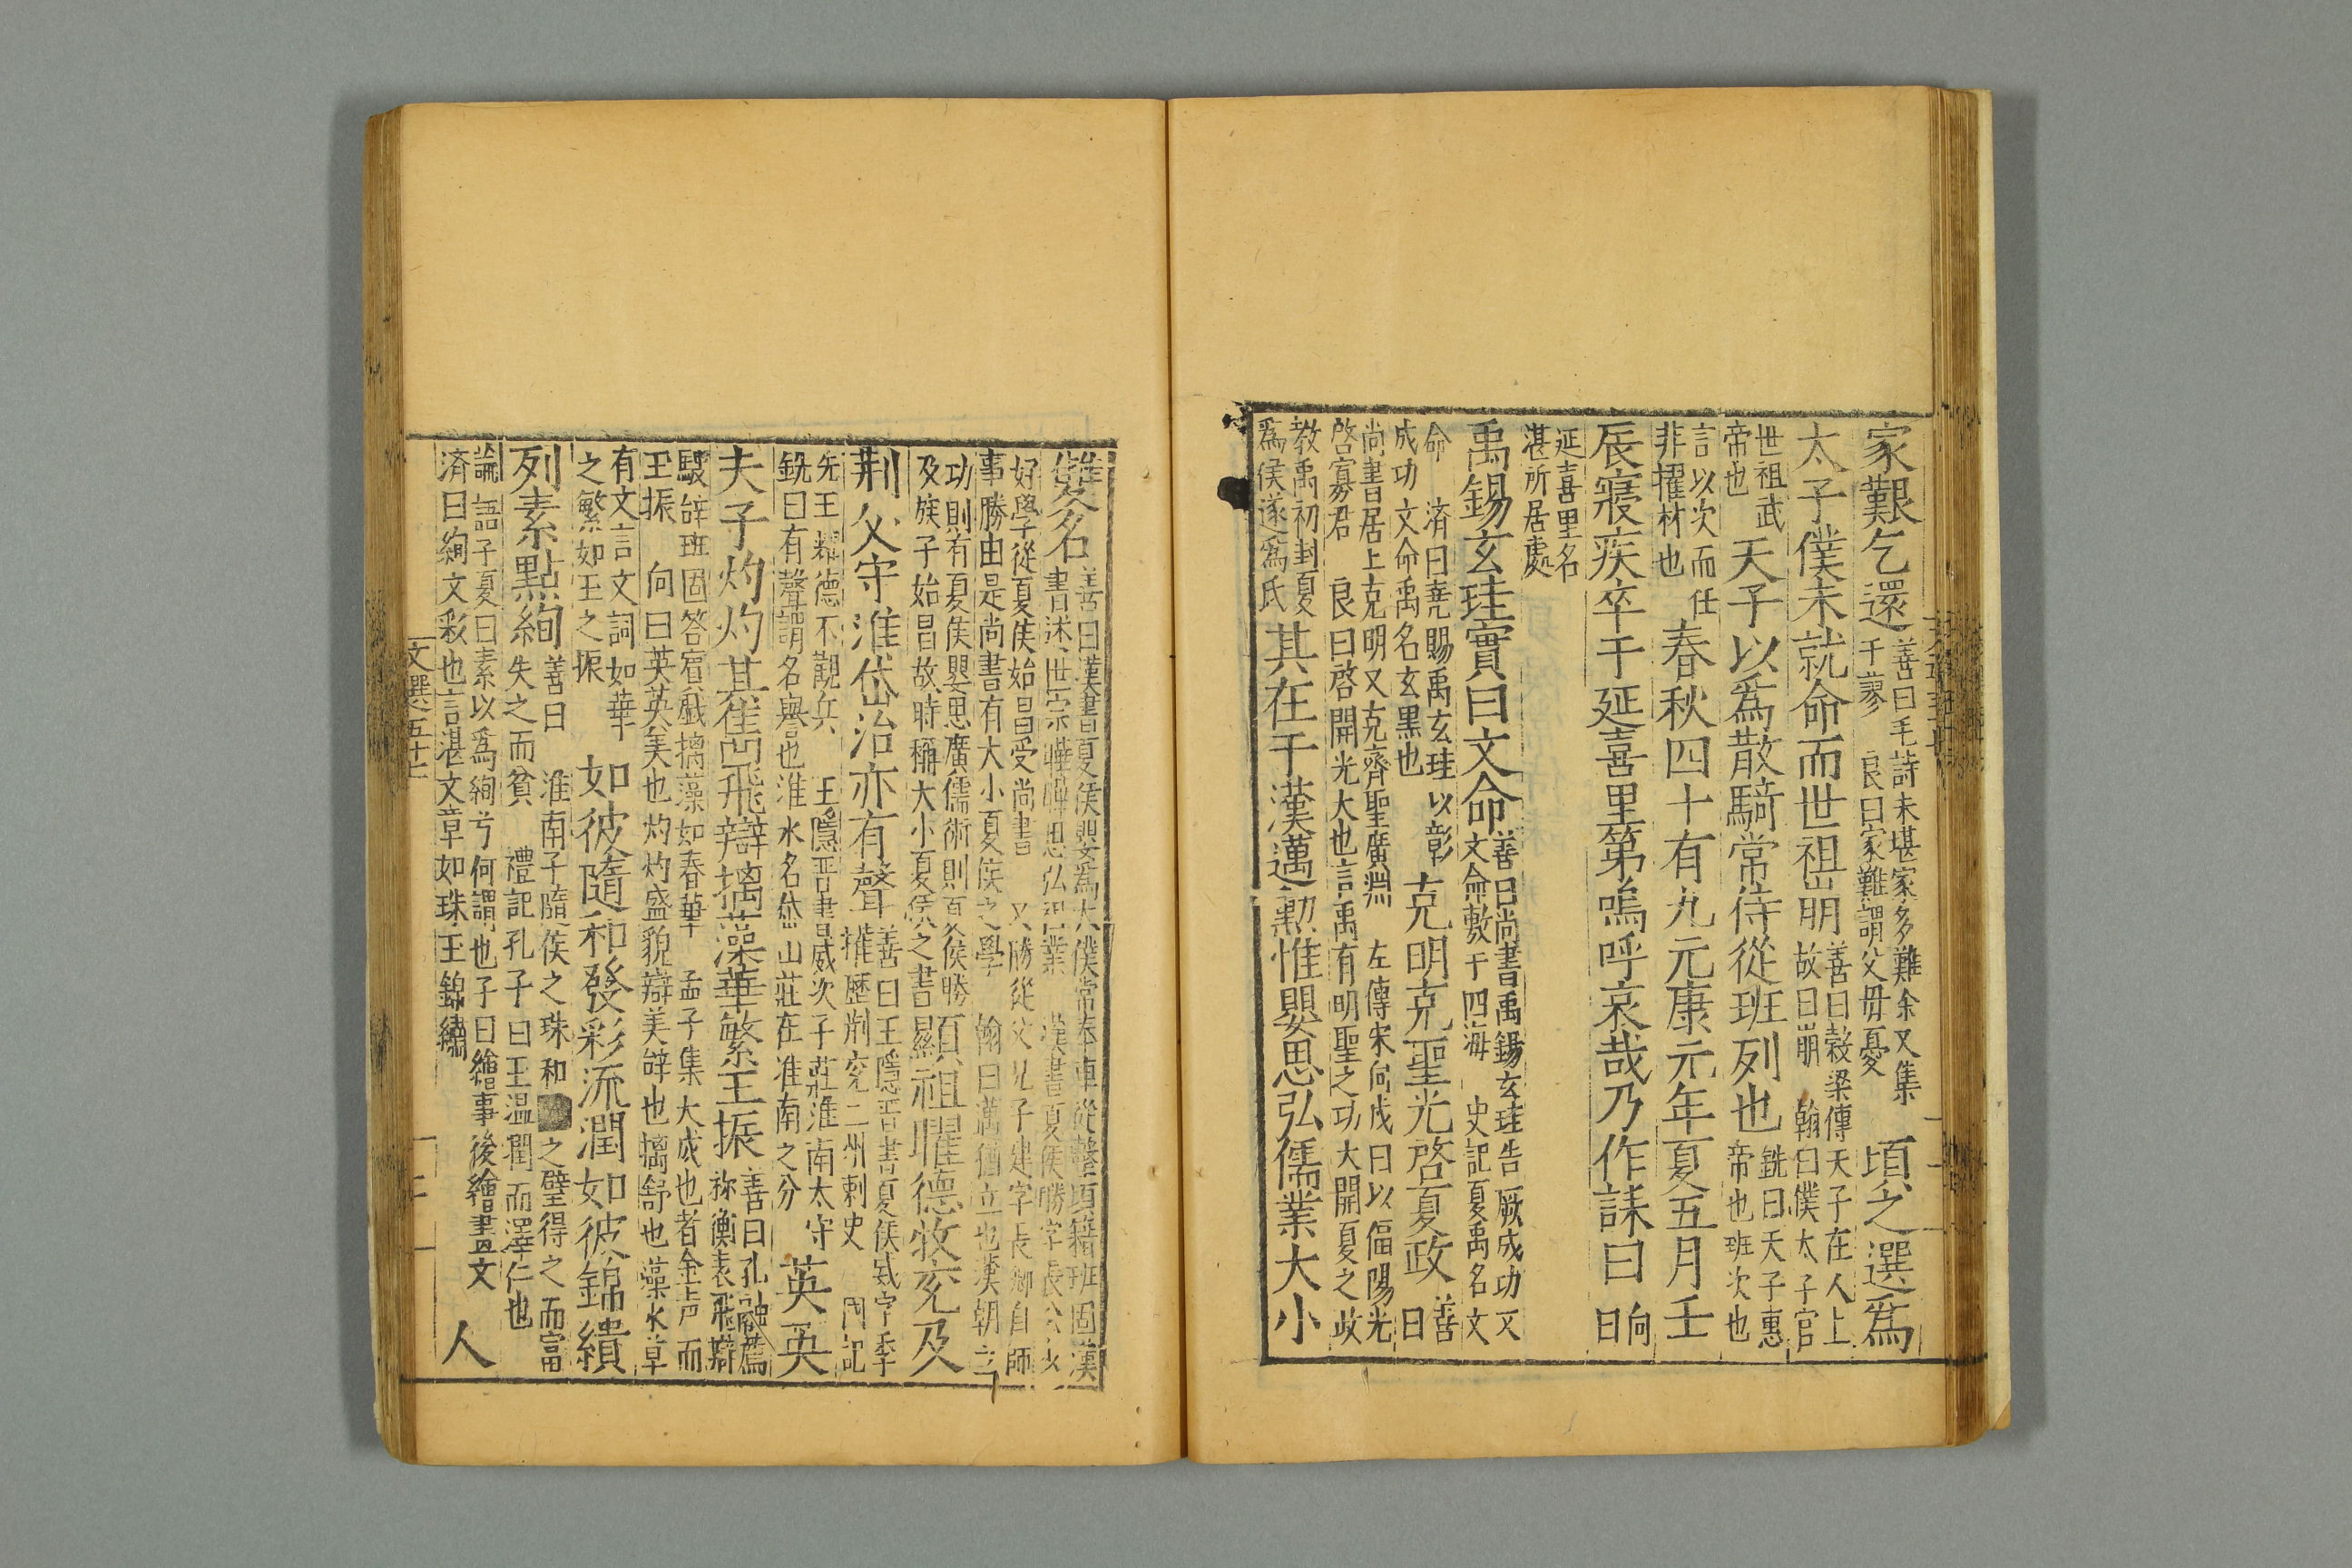 家艱乞還善曰毛詩未堪家多難余又集
于蓼　良曰家難謂父毋憂頃之選爲
太子僕未就命而世祖崩善曰穀梁傳天子在人上
故曰崩　翰曰僕太子官
世祖武
帝也天子以爲散騎常侍從班列也銑曰天子惠
帝也班次也
言以次而任
非擢材也春秋四十有九元康元年夏五月壬
辰寢疾卒于延喜里第嗚呼哀哉乃作誄曰向
曰
延喜里名
湛所居處
禹錫玄珪實曰文命善曰尚書禹錫玄珪告厥成功又
文命敷于四海　史記夏禹名文
命　済曰堯賜禹玄珪以彰
成功文命禹名玄黑也克明克聖光啓夏政善
曰
尚書居上克明又克齊聖廣淵　左傳宋向戌曰以偪陽光
啓寡君　良曰啓開光大也言禹有明聖之功大開夏之政
教禹初封夏
爲侯遂爲氏其在于漢邁勲惟嬰思弘儒業大小
雙名善曰漢書夏侯嬰爲太僕常奉車從擊項籍班固漢
書述世宗曄曄思弘祖業　漢書夏侯勝字長公少
好學從夏侯始昌受尚書　又勝從父兄子建字長卿自師
事勝由是尚書有大小夏侯之學　翰曰邁猶立也漢朝立
功則有夏侯嬰思廣儒術則夏侯勝
及族子始昌故時稱大小夏侯之書顯祖曜德牧兗及
荆父守淮岱治亦有聲善曰王隱晋書夏侯威字季
權歷荆兗二州刺史　國記
先王耀德不觀兵　王隱晋書威次子莊淮南太守
銑曰有聲謂名譽也淮水名岱山莊在淮南之分英英
夫子灼灼其雋飛辯摛藻華繁玉振善曰孔融薦
祢衡表飛辯
騁辞班固答賓戲摛藻如春華　孟子集大成也者金声而
玉振　向曰英英美也灼灼盛貌辯美辞也摛舒也藻水草
有文言文詞如華
之繁如玉之振如彼隨和發彩流潤如彼錦繢
列素點絢善曰　淮南子隨侯之珠和之璧得之而富
失之而貧　禮記孔子曰玉温潤而澤仁也
論語子夏曰素以爲絢兮何謂也子曰繪事後繪畫文
済曰絢文彩也言湛文章如珠玉錦繡人
文選五十七